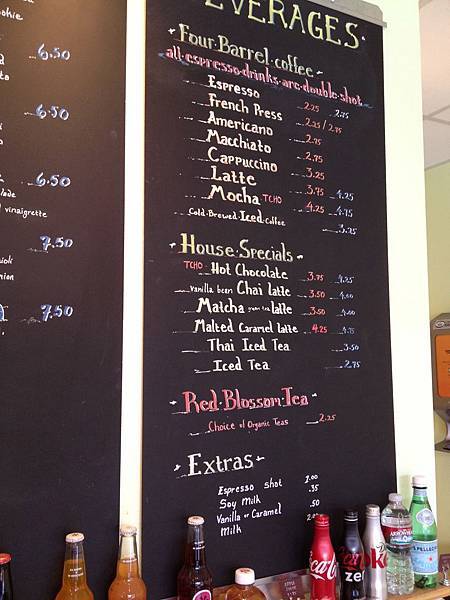 BEVERAGES
Four Barrel coffee
all espresso drinks are double shot
Espresso 2.25 2.75
French Press 2.25/2.75
Americano 2.75
Macchiato 2.75
Cappuccino 3.25
Latte 3.75 4.25
Mocha TCHO 4.25 4.75
Cold-Brewed Iced Coffee 3.25
House Specials
TCHO Hot Chocolate 3.75 4.25
vanilla bean Chai latte 3.50 4.00
Matcha green tea latte 3.50 4.00
Malted Caramel latte 4.25 4.75
Thai Iced Tea 3.50
Iced Tea 2.75
Red Blossom Tea
Choice of Organic Teas 2.25
Extras
Espresso shot 1.00
Soy Milk .35
Vanilla or Caramel .50
Milk
6.50
6.50
6.50
vinaigrette
7.50
7.50
Coca-Cola
zero
ARROWHEAD
S.PELLEGRINO